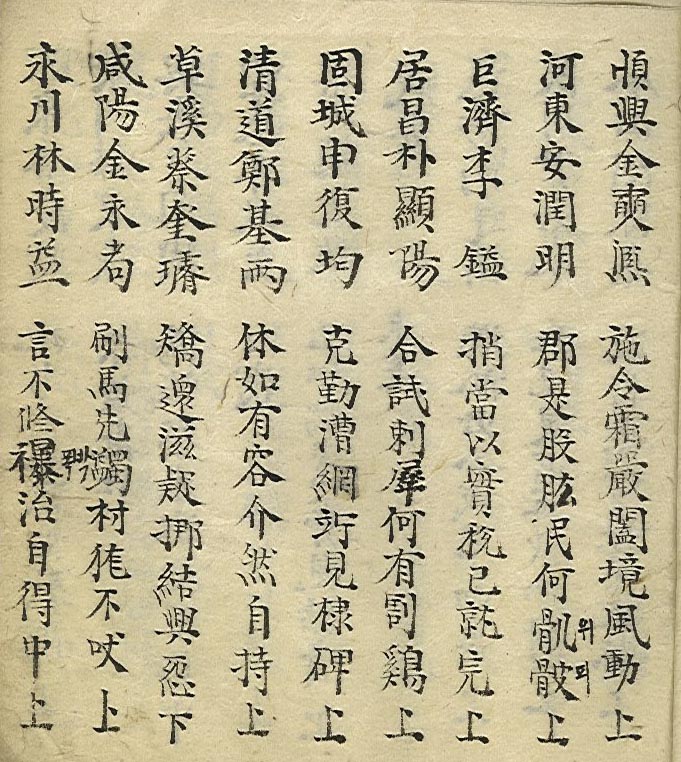 順興金奭凞 施令霜嚴闔境風動 上
河東安潤明 郡是股肱民何骩骳 上
위 피
巨濟李鎰 當以實税已就完 上
居昌朴顯陽 合試刺犀何有割鷄 上
固城申復均 克勤漕網竚見棣碑 上
清道鄭基雨 休如有容介然自持 上
草溪蔡奎璿 矯邉滋疑挪結興怨 下
咸陽金永耇 刷馬先蠲村狵不吠 上
永川林時益 言不修襮治自得中 上